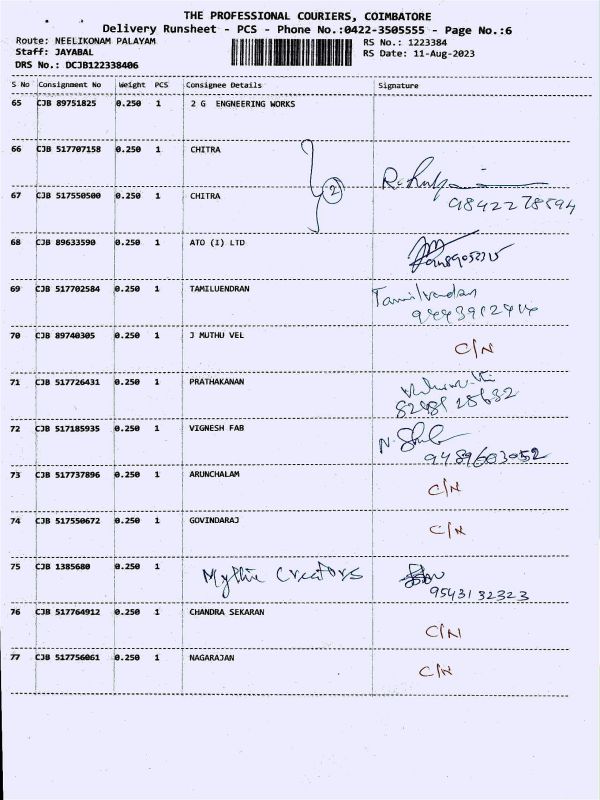 THE PROFESSIONAL COURIERS, COIMBATORE
Delivery Runsheet - PCS - Phone No.:0422-3505555 - Page No.:6
Route: NEELIKONAM PALAYAM RS No.: 1223384
Staff: JAYABAL RS Date: 11-Aug-2023
DRS No.: DCJB122338406
S No Consignment No Weight PCS Consignee Details Signature
65 CJB 89751825 0.250 1 2 G ENGNEERING WORKS
66 CJB 517707158 0.250 1 CHITRA
67 CJB 517550500 0.250 1 CHITRA 2 9842278594
68 CJB 89633590 0.250 1 ATO (I) LTD
69 CJB 517702584 0.250 1 TAMILUENDRAN Tamilvendan
70 CJB 89740305 0.250 1 J MUTHU VEL C/N
71 CJB 517726431 0.250 1 PRATHAKANAN
72 CJB 517185935 0.250 1 VIGNESH FAB 9489603052
73 CJB 517737896 0.250 1 ARUNCHALAM C/N
74 CJB 517550672 0.250 1 GOVINDARAJ C/N
75 CJB 1385680 0.250 1 Mythie Creators 9543132323
76 CJB 517764912 0.250 1 CHANDRA SEKARAN C/N
77 CJB 517756061 0.250 1 NAGARAJAN C/N